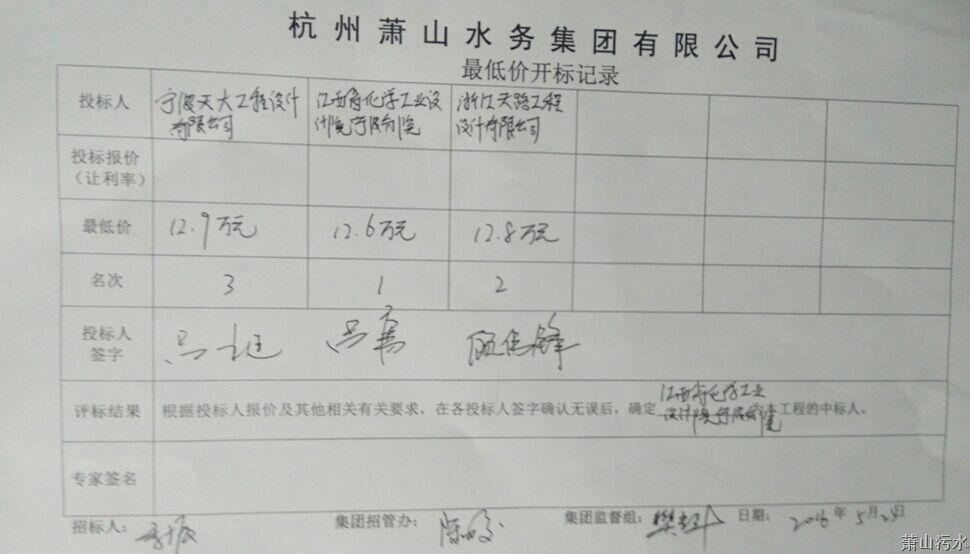 杭州萧山水务集团有限公司
最低价开标记录
投标人 宁波天大工程设计有限公司 江西省化学工业设计院宁波分院 浙江天路工程设计有限公司
投标报价（让利率）
最低价 12.9万元 12.6万元 12.8万元
名次 3 1 2
投标人签字
评标结果 根据投标人报价及其他相关有关要求，在各投标人签字确认无误后，确定 江西省化学工业设计院宁波分院 为本工程的中标人。
专家签名
招标人： 集团招管办： 集团监督组： 日期： 2016年5月24日
萧山污水